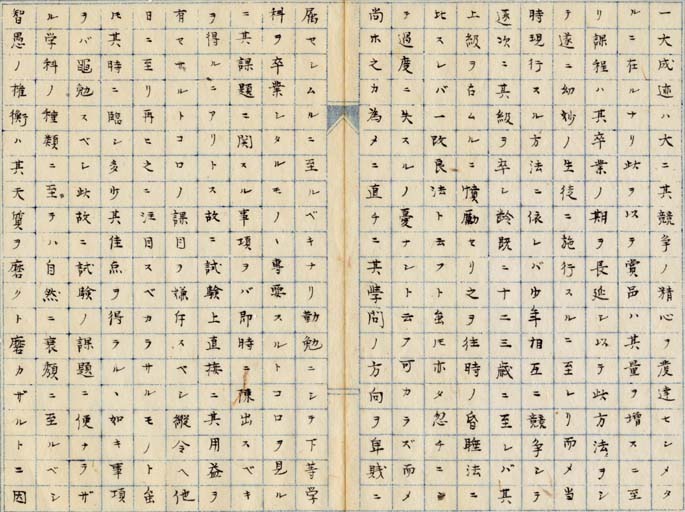 一大成迹ハ大ニ其競争ノ精心ヲ発達セシメタ
ルニ在ルナリ此ヲ以テ賞品ハ其量ヲ増スニ至
リ課程ハ其卒業ノ期ヲ長延シ以テ此方法ヲシ
テ遂ニ幼妙ノ生徒ニ施行スルニ至レリ而メ当
時現行スル方法ニ依レバ少年相互ニ競争シテ
逐次ニ其級ヲ卒シ齢既ニ十二三歳ニ至レバ其
上級ヲ占ムルニ憤励セリ之ヲ往時ノ昏睡法ニ
比スレバ一改良法ト云フト雖モ亦タ忽チニシ
テ過度ニ失スルノ憂ナシト云フ可カラズ而メ
尚ホ之カ為メニ直チニ其学問ノ方向ヲ卑賎ニ
属セシムルニ至ルベキナリ勤勉ニシテ下等学
科ヲ卒業シタルモノハ専要スルトコロヲ見ル
ニ其課題ニ関スル事項ヲバ即時ニ陳出スベキ
ヲ得ルニアリトス故ニ試験上直接ニ其用益ヲ
有セサルトコロノ課目ヲ嫌忌スベシ縦令ヘ他
日ニ至リ再ヒ之ニ注目スベカラサルモノト雖
モ其時ニ臨ン多少其佳点ヲ得ラルヽ如キ事項
ヲバ黽勉スベシ此故ニ試験ノ課題ニ便ナラザ
ル学科ノ種類ニ至テハ自然ニ衰頽ニ至ルベシ
智愚ノ権衡ハ其天質ヲ磨クト磨カザルトニ因